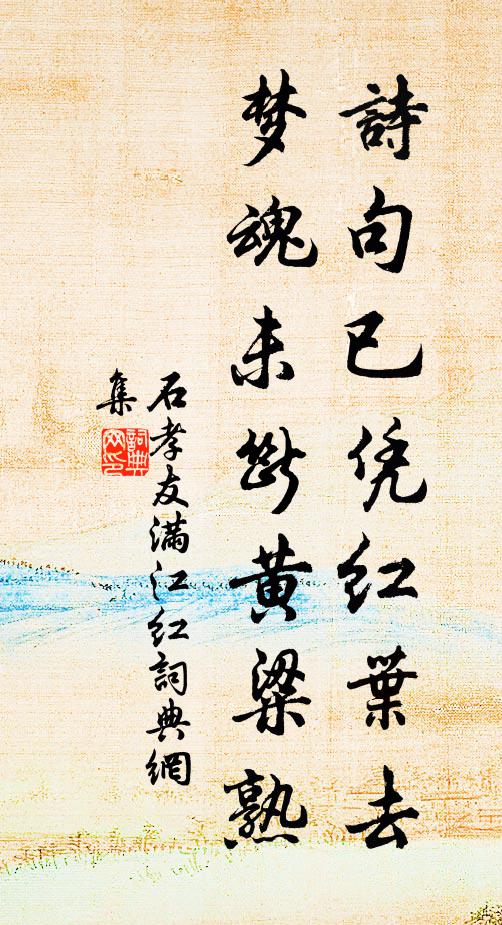 詩句已凭红葉去
梦魂未断黄粱熟
石孝友满江红詞典網
集
詞典网印